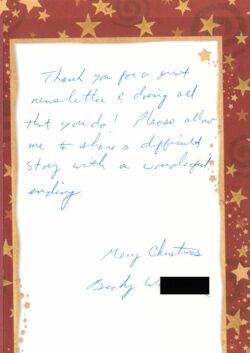 Thank you for a great
newsletter & doing all
that you do! Please allow
me to share a difficult
story with a wonderful
ending.
Merry Christmas
Becky W